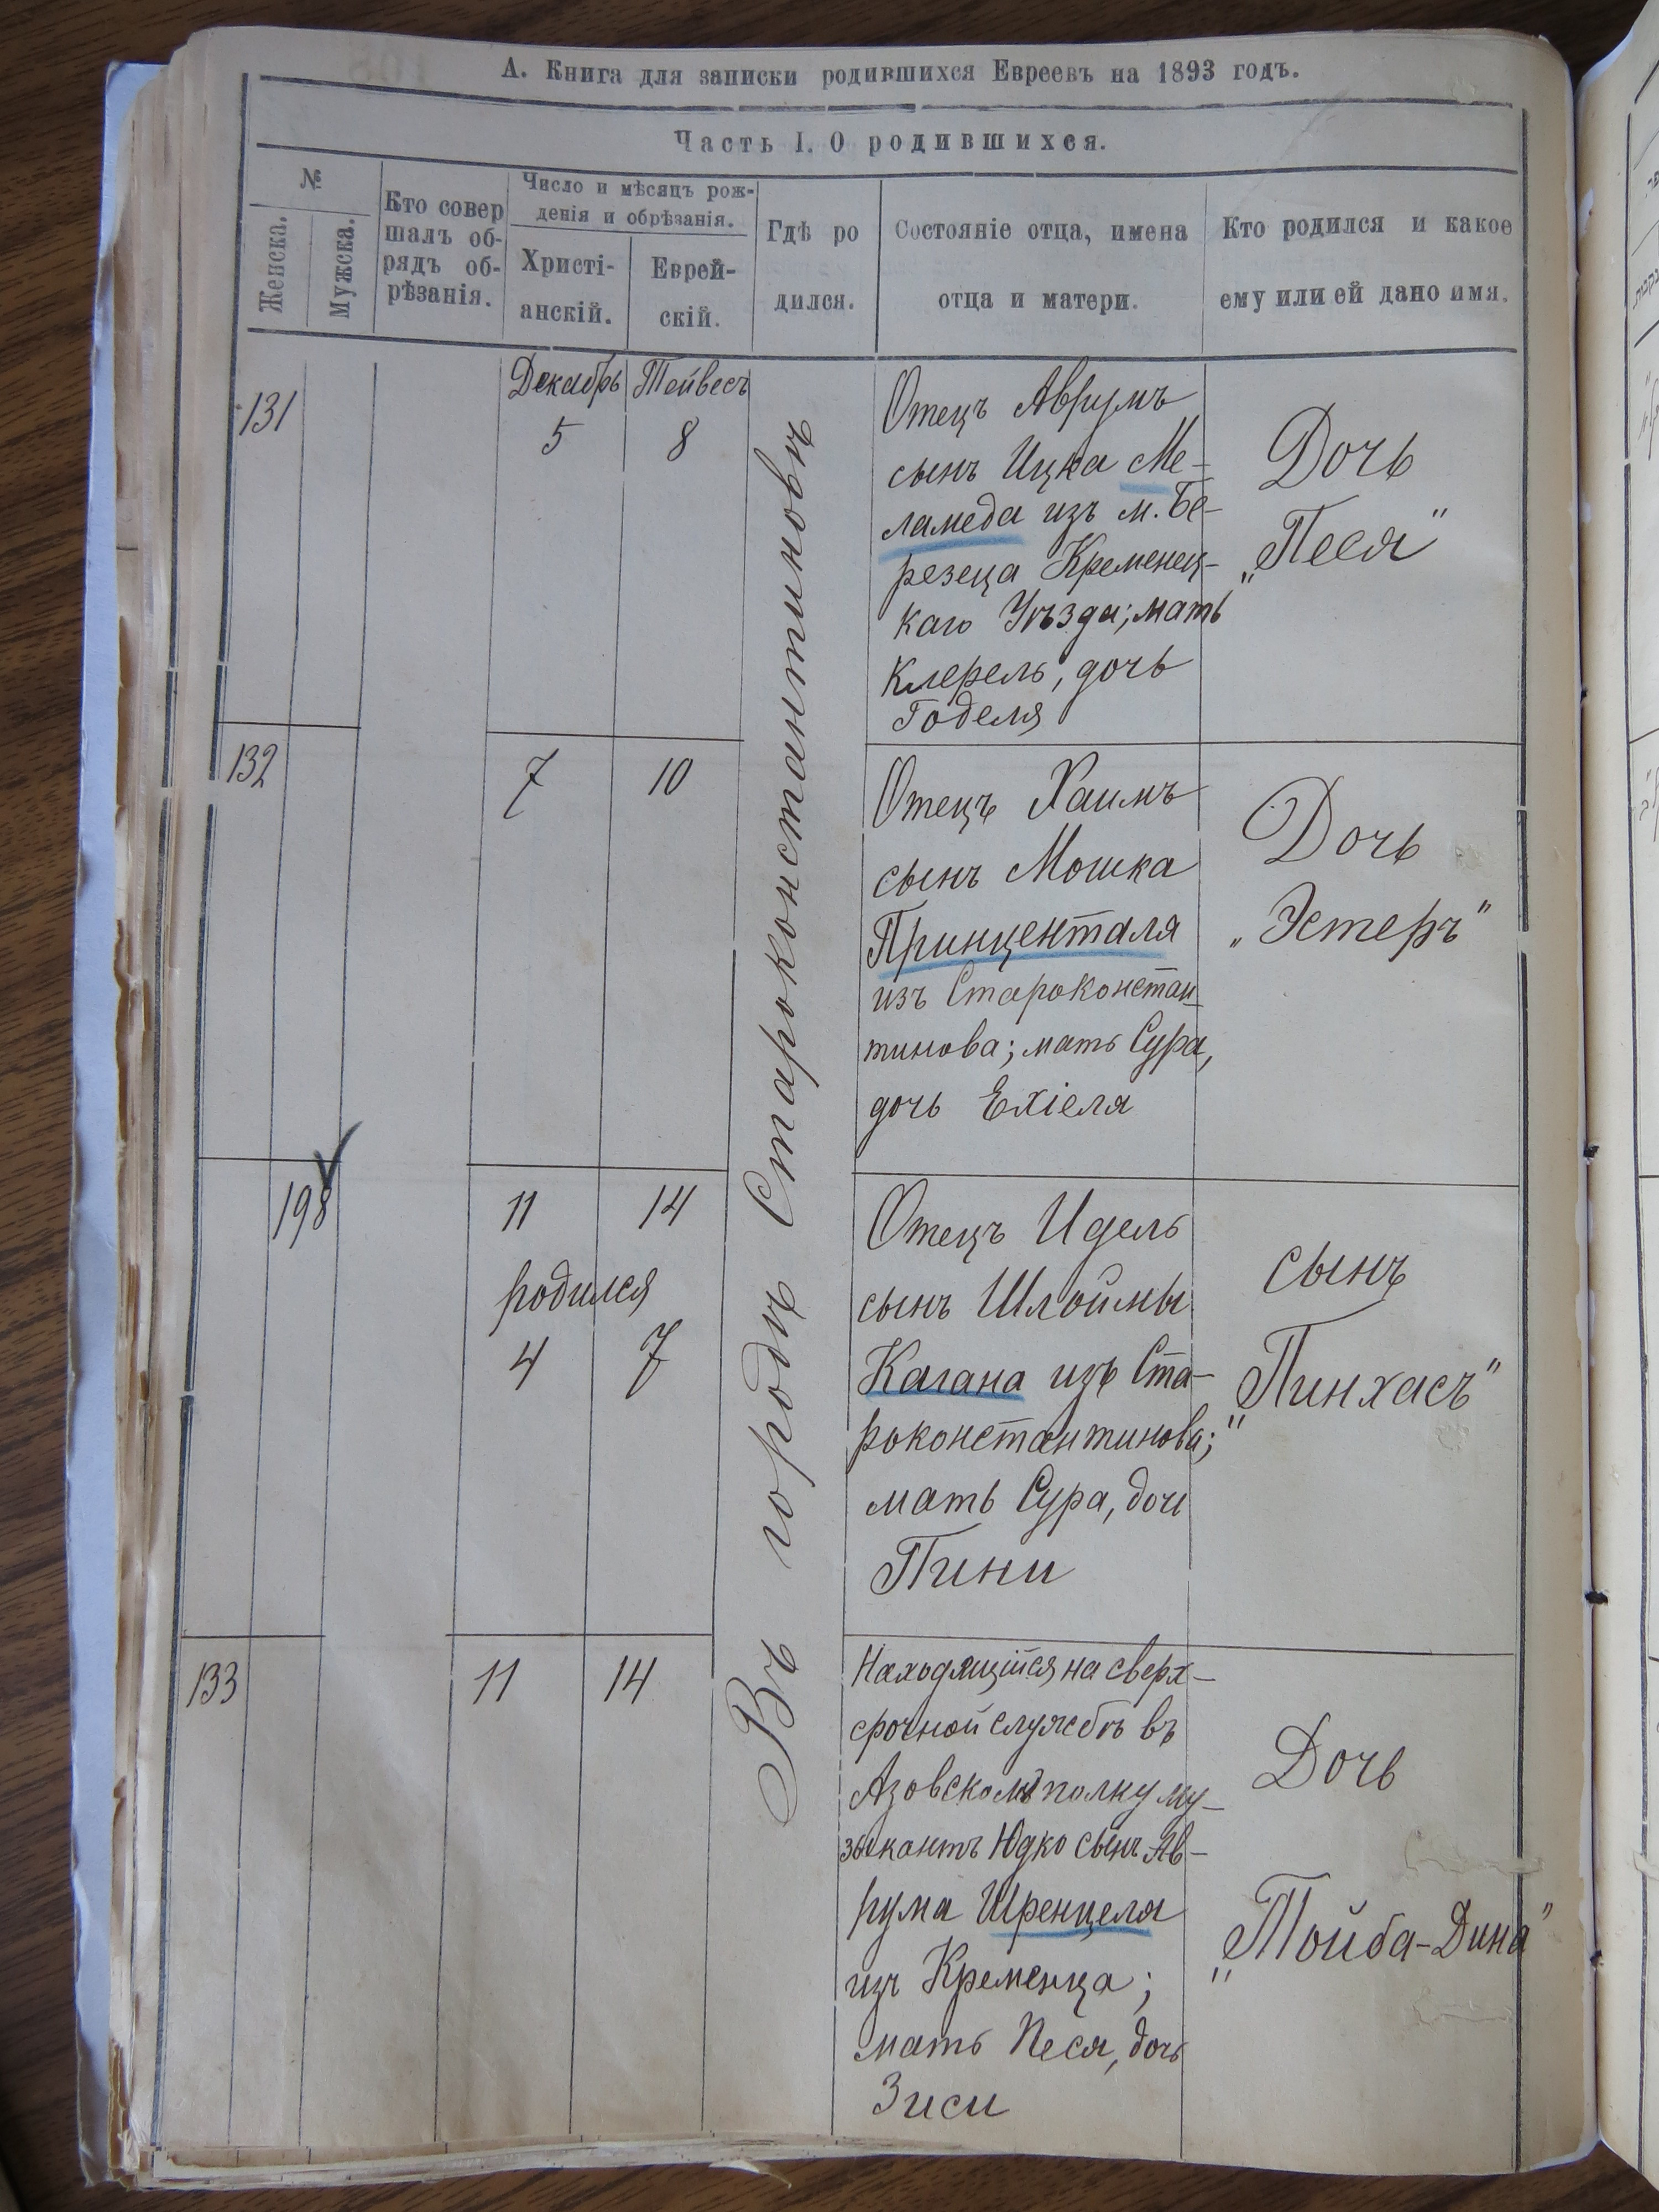 А. Книга для записки родившихся Евреевъ на 1893 годъ.
Часть I. О родившихся.
№
Женска.
Мужска.
Кто совер
шалъ об-
рядъ об-
рѣзанія.
Число и мѣсяцъ рож-
денія и обрѣзанія.
Христі-
анскій.
Еврей-
скій.
Гдѣ ро
дился.
Состояніе отца, имена
отца и матери.
Кто родился и какое
ему или ей дано имя.
Въ городѣ Староконстантиновѣ
131
Декабрь
5
Тейвесъ
8
Отецъ Аврумъ
сынъ Ицка Ме-
ламеда изъ м. Бе-
резеца Кременец-
каго Уѣзда; мать
Клерель, дочь
Годеля
Дочь
„Песя"
132
7
10
Отецъ Хаимъ
сынъ Мошка
Принценталя
изъ Староконстан
тинова; мать Сура,
дочь Ехіеля
Дочь
„Эстеръ"
198
11
14
родился
4
7
Отецъ Идель
сынъ Шлоймы
Кагана изъ Ста-
роконстантинова;
мать Сура, дочь
Пини
сынъ
„Пинхасъ"
133
11
14
Находящійся на сверх-
срочной службѣ въ
Азовскомъ полку му-
зыкантъ Юдко сынъ Ав-
рума Шренцеля
изъ Кременца;
мать Песя, дочь
Зиси
Дочь
„Тойба-Дина"